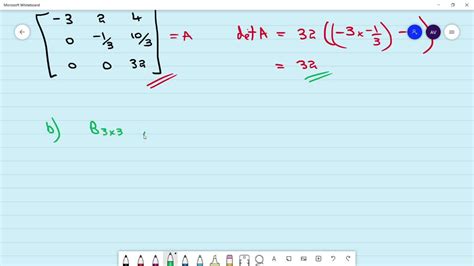 Microsoft Whiteboard
-3 2 4
0 -1/3 10/3 = A
0 0 32
det A = 32 ((-3 x -1/3) -
= 32
b) B3x3
AV